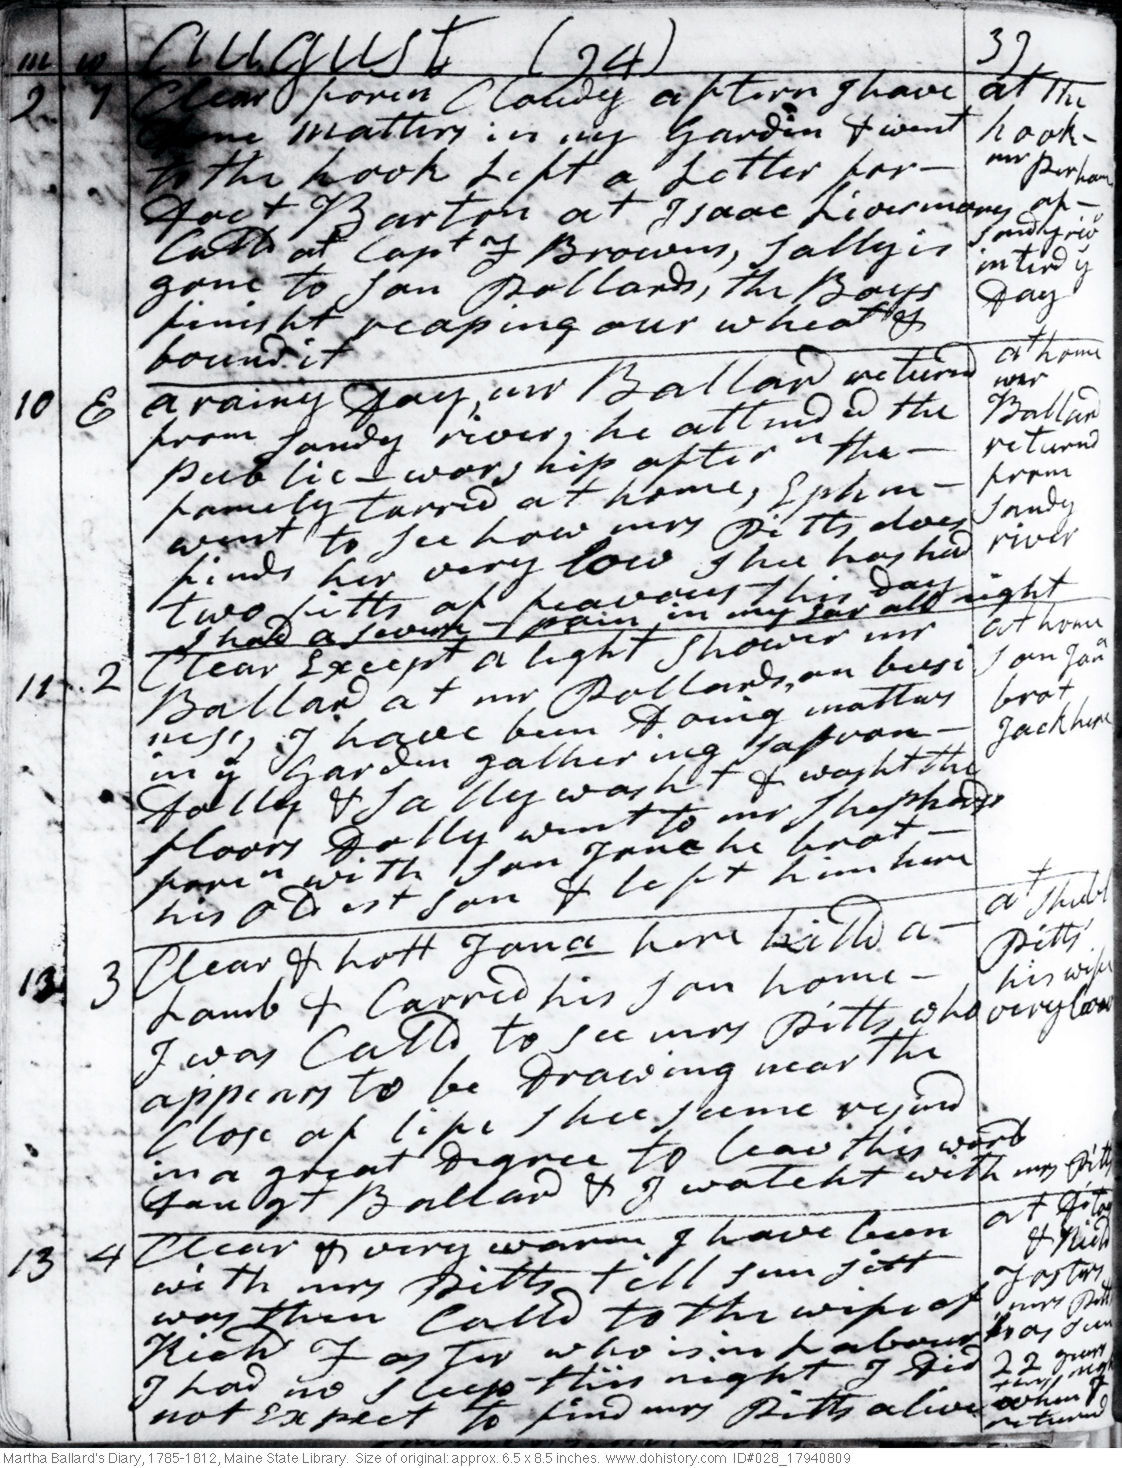 m w August (94) 37
2 7 Clear foren Cloudy aftern I have
done matters in my Gardin & went
to the hook left a Letter for -
Doct Barton at Isaac Livermores
Calld at Capt J Browns, Sally is
gone to Son Pollards, the Boys
finisht reaping our wheat &
bound it
at the
hook -
mr
of -
Sandy riv
interd y
Day
10 E a rainy Day, mr Ballard returnd
from Sandy river, he attended the
public - worship aftern the -
famely tarred at home, Ephm -
went to See how mrs Pitts does
finds her very low Shee has had
two fitts of this day
I had a severe pain in my Ear all night
at home
mr
Ballard
returnd
from
Sandy
river
11 2 Clear Except a light Shower mr
Ballard at mr Pollards, on busi
ness, I have been Doing matters
in y Gardin gathering Saffron -
Dolly & Sally washt & washt the
floors Dolly went to mr Shephards
foren with Son Jona he brot -
his oldest Son & left him here
at home
Son Jona
brot
Jack here
12 3 Clear & hott Jona here killd a -
Lamb & Carred his Son home -
I was Calld to See mrs Pitts who
appears to be Drawing near the
Close of life Shee seeme resind
in a great Degree to leav this world
Daugt Ballard & I watcht with mrs Pitts
at Shubl
Pitts
his wife
very low
13 4 Clear & very warm I have been
with mrs Pitts till Sun Sett
was then Calld to the wife of
Richd Foster who is in Labour
I had no Sleep this night I Did
not Expect to find mrs Pitts alive
at Ditos
& Richd
Fosters
mrs Pitts
was Seen
22 years
this night
when I
returned
Martha Ballard's Diary, 1785-1812, Maine State Library. Size of original: approx. 6.5 x 8.5 inches. www.dohistory.com ID#028_17940809